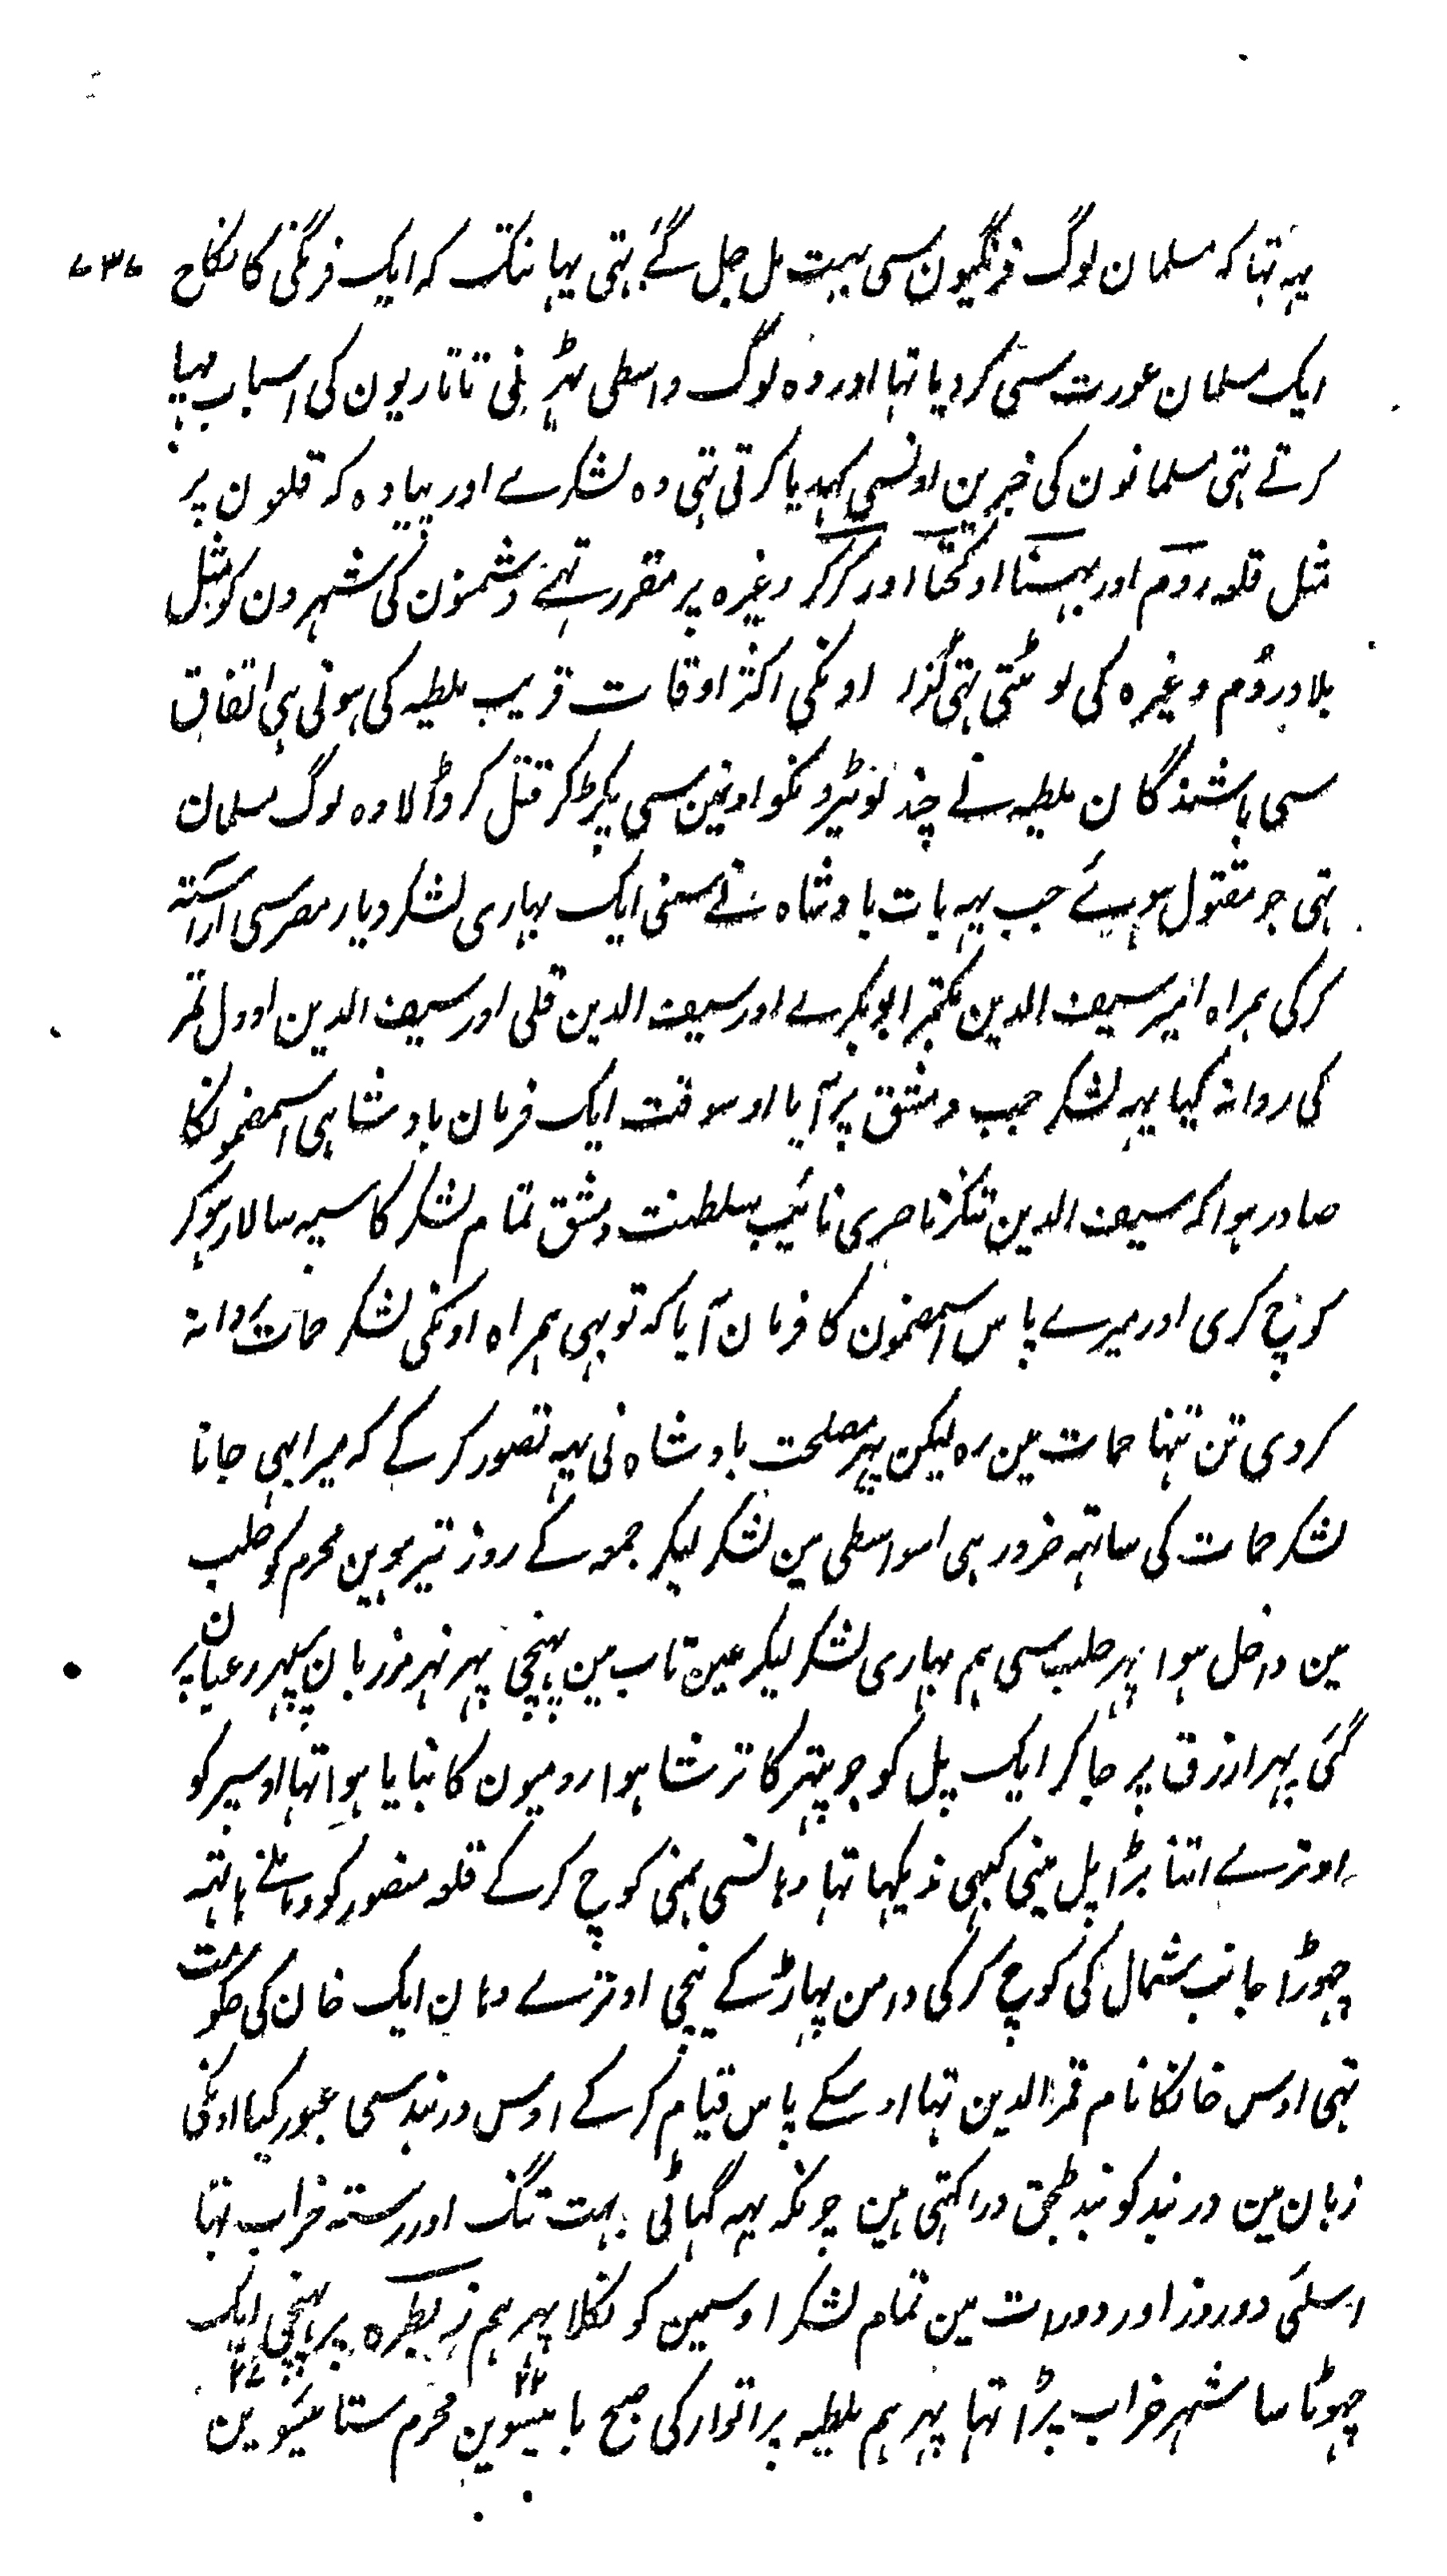 یہہ تہا کہ مسلمان لوگ فرنگیون سی بہت مل جل گئے تہی یہانتک کہ ایک فرنگی کا نکاح ۷۳۷
ایک مسلمان عورت سی کردیا تہا اور وہ لوگ واسطی تاتاریون کی اسباب مہیا
کرتے تہی مسلمانون کی خبرین اونسی کہدیا کرتی تہی وہ لشکرے اور پیادہ کہ قلعون پر
مثل قلعہ روم اور بہسنا اور کختا اور کرکر وغیرہ پر مقرر تہے دشمنون کی شہرون کو مثل
بلاد روُم وغیرہ کی لوٹتی تہی گذا اونکی اکثر اوقات قریب ملطیہ کی ہوتی ہی اتفاق
سی باشندگان ملطیہ نے چند لوٹیرونکو اونہین سی پکڑ کر قتل کر ڈالا وہ لوگ مسلمان
تہی جو مقتول ہوئے جب یہہ بات بادشاہ نے سنی ایک بہاری لشکر دیار مصر سی آراستہ
کرکی ہمراہ امیر سیف الدین بکتمر ابوبکرے اور سیف الدین قلی اور سیف الدین اوول تمر
کی روانہ کیا یہہ لشکر جب دمشق پر آیا اوسوقت ایک فرمان بادشاہی اسمضمونکا
صادر ہوا کہ سیف الدین تنکز ناصری نائب سلطنت دمشق تمام لشکر کا سپہ سالار ہوکر
کوچ کری اور میرے پاس اسمضمون کا فرمان آیا کہ تو بہی ہمراہ اونکی لشکر حمات روانہ
کردی تن تنہا حمات مین رہ لیکن پہر مصلحت بادشاہ نی یہہ تصور کرکے کہ میرا بہی جانا
لشکر حمات کی ساتہہ ضرور ہی اسواسطی مین لشکر لیکر جمعہ کے روز تیرہوین محرم کو حلب
مین داخل ہوا پہر حلب سی ہم بہاری لشکر لیکر عین تاب مین پہنچی پہر نہر مرزبان پہر رعبان پر
گئی پہر ارزق پر جاکر ایک پل کو جو پتہر کا ترشا ہوا رومیون کا بنایا ہوا تہا اوسپر کو
اوترے اتنا بڑا پل مینی کبہی ندیکہا تہا وہانسی ہمنی کوچ کرکے قلعہ منصور کو داہنے ہاتہہ
چہوڑا جانب شمال کی کوچ کرکی دامن پہاڑ کے نیچی اوترے وہان ایک خان کی حکومت
تہی اوس خانکا نام قمر الدین تہا اوسکے پاس قیام کرکے اوس دربند سی عبور کیا اونکی
زبان مین دربند کو بند طجق درا کہتی ہین چونکہ یہہ گہاٹی بہت تنگ اور رستہ خراب تہا
اسلئی دو روز اور دو رات مین تمام لشکر اوسمین کو نکلا پہر ہم زبطرہ پر پہنچی ایک
چہوٹا سا شہر خراب پڑا تہا پہر ہم ملطیہ پر اتوار کی صبح بائیسوین ۲۲ محرم ستائیسوین ۲۷